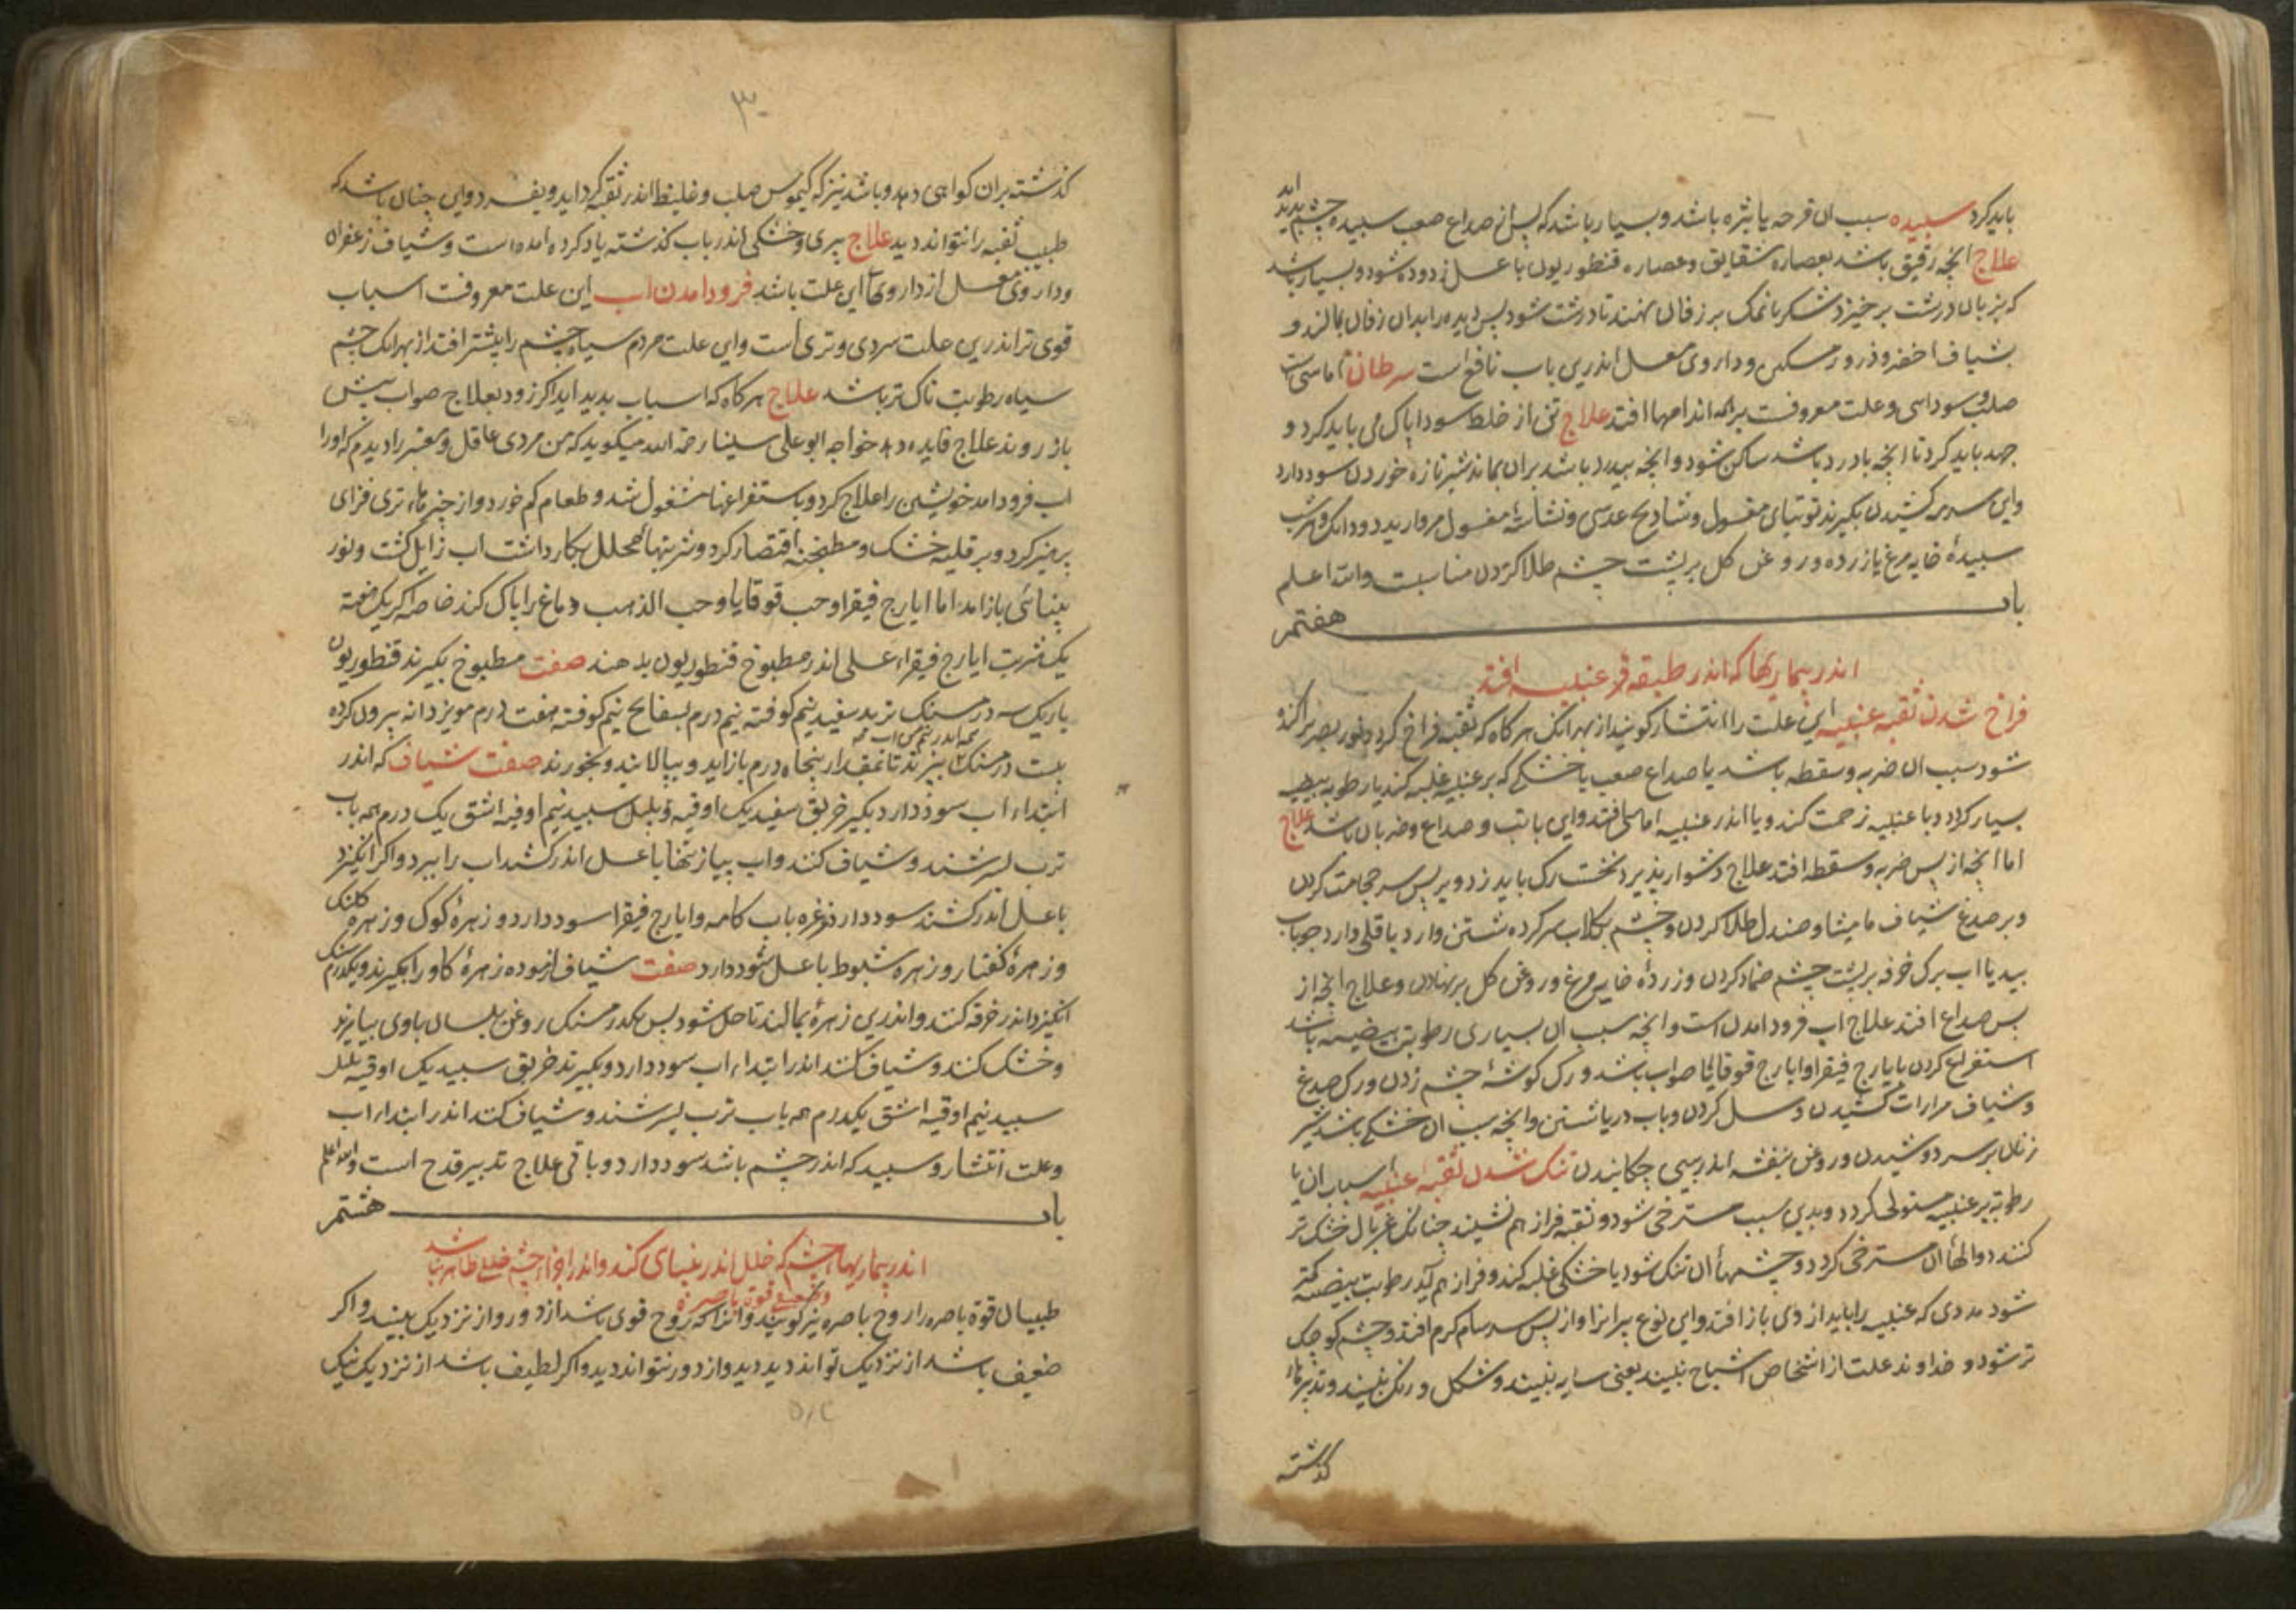 باید کرد سبیده سبب ان قرحه یا بثره باشد و بسیار باشد که بس از صداع صعب سبیده جشم بدید اید
علاج انجه رقیق باشد بعصاره شقایق و عصاره قنطوریون با عسل زدوده شود و بسیار باشد
که بزبان درشت برخیزد شکر با نمک بر زفان نهند تا درشت شود بس دیده را بدان زفان بمالند و
شیاف اخضر و ذرور مسکین و داروی معسل اندرین باب نافع است سرطان اماسی است
صلب و سوداسی و علت معروفت بر همه اندامها افتد علاج تن از خلط سودا پاک می باید کرد و
جهد باید کرد تا انجه با درد باشد ساکن شود و انجه بیدرد باشد بران بماند شیر تازه خوردن سود دارد
و این سرمه کشیدن بکیرند توتیای مغسول و شادنج عدسی و نشاسته مغسول مروارید دو دانک
سبیدهٔ خایه مرغ یا زرده و روغن کل بر پشت جشم طلا کردن مناسبت والله اعلم
باب هفتم
اندر بیماریها که اندر طبقه عنبیه افتد
فراخ شدن ثقبه عنبیه این علت را انتشار کویند از بهر انک هرکاه که ثقبه فراخ کردد نور بصر براکنده
شود سبب ان ضربه و سقطه باشد یا صداع صعب یا خشکی که بر عنبیه غلبه کند یا رطوبه بیضیه
بسیار کردد و با عنبیه زحمت کند و یا اندر عنبیه اماسی افتد و این با تب و صداع و ضربان باشد علاج
اما انجه از بس ضربه و سقطه افتد علاج دشوار بذیرد نخست رک باید زد و بر بس سر حجامت کردن
و بر صدغ شیاف مامیثا و صندل طلا کردن و جشم بکلاب سر کرده شستن و ارد باقلی و ارد جو باب
بید یا اب برک خرفه بر پشت جشم ضماد کردن و زردهٔ خایه مرغ و روغن کل بر نهادن و علاج انجه از
بس صداع افتد علاج اب فرود امدن است و انجه سبب ان بسیاری رطوبت بیضیه باشد
استفراغ کردن بایارج فیقرا و ایارج قوقایا صواب باشد و رک کوشهٔ جشم زدن و رک صدغ
و شیاف مرارات کشیدن و سل کردن و باب دریا شستن و انجه سبب ان خشکی باشد شیر
زنان بر سر دوشیدن و روغن بنفشه اندر بینی جکانیدن تنک شدن ثقبه عنبیه اسباب ان یا
رطوبه بر عنبیه مستولی کردد و بدین سبب مسترخی شود و ثقبه فراز هم نشیند جنانک غربال خشک تر
کنند دوالهاٴ ان مسترخی کردد و جشمهاٴ ان تنک شود یا خشکی غلبه کند و فراز هم اید رطوبت بیضیه کمتر
شود مددی که عنبیه را باید از وی باز افتد و این نوع پیرانرا و از بس سرسام کرم افتد و جشم کوجک
تر شود و خداوند علت از اشخاص اشباح نبیند یعنی سایه بیند و شکل و رنک نبیند و تدبیرها
کذشته
۳۰
کذشته بران کواهی دهد و باشد نیز که کیموس صلب و غلیظ اندر ثقبه کرد اید و بفسرد و این جنان باشد که
طبیب ثقبه را نتواند دید علاج بیری و خشکی اندر باب کذشته یاد کرده امده است و شیاف زعفران
و داروی معسل از داروها این علت باشد فرود امدن اب این علت معروفت اسباب
قوی تر اندرین علت سردی و تری است و این علت مردم سیاه جشم را بیشتر افتد از بهر انک جشم
سیاه رطوبت ناک تر باشد علاج هرکاه که اسباب بدید اید اکر زود بعلاج صواب بیش
باز روند علاج فایده دهد خواجه ابو علی سینا رحمة الله میکوید که من مردی عاقل و معتبر را دیدم که او را
اب فرود امد خویشتن را علاج کرد و باستفراغها مشغول شد و طعام کم خورد و از جیزهاء تری فزای
پرهیز کرد و بر قلیه خشک و مطبخه اقتصار کرد و شربتهاٴ محلل بکار داشت اب زایل کشت و نور
بینائی باز امد اما ایارج فیقرا و حب قوقایا و حب الذهب دماغ را پاک کند خاصه اکر یک هفته
یک شربت ایارج فیقراء علی اندر مطبوخ قنطوریون بدهند صفت مطبوخ بکیرند قنطوریون
باریک سه درمسنک تربد سفید نیم کوفته نیم درم بسفایج نیم کوفته هفت درم مویز دانه بیرون کرده
همه اندر نیم من اب
بیست درمسنک بپزند تا بمقدار بنجاه درم باز اید و ببالایند و بخورند صفت شیاف که اندر
ابتداء اب سود دارد بکیر خربق سفید یک اوقیه و بلبل سبید نیم اوقیه اشق یک درم همه باب
ترب بسرشند و شیاف کنند و اب پیاز تنها با عسل اندر کشند اب را ببرد و اکر انکزد
با عسل اندر کشند سود دارد و غرغره باب کامه و ایارج فیقرا سود دارد و زهرهٔ کوک و زهرهٔ کلنک
و زهرهٔ کفتار و زهره شبوط با عسل سود دارد صفت شیاف ازموده زهرهٔ کاو را بکیرند و یکدرم سنک
انکزد اندر خرقه کنند و اندرین زهرهٔ بمالند تا حل شود بس یکدرمسنک روغن بلسان با وی بیامیزند
و خشک کنند و شیاف کنند اندر ابتداء اب سود دارد و بکیرند خربق سبید یک اوقیه بلبل
سبید نیم اوقیه اشق یکدرم همه باب ترب بسرشند و شیاف کنند اندر ابتداء اب
و علت انتشار و سبید که اندر جشم باشد سود دارد و باقی علاج تدبیر قدح است والله اعلم
باب هشتم
اندر بیماریهاء جشم که خلل اندر بینای کند و اندر اجزاء جشم خللی ظاهر نباشد
و ضعیفی قوت باصره
طبیبان قوة باصره را روح باصره نیز کویند و انرا که روح قوی باشد از دور و از نزدیک بیند و اکر
ضعیف باشد از نزدیک تواند دید و از دور نتواند دید و اکر لطیف باشد از نزدیک نیک